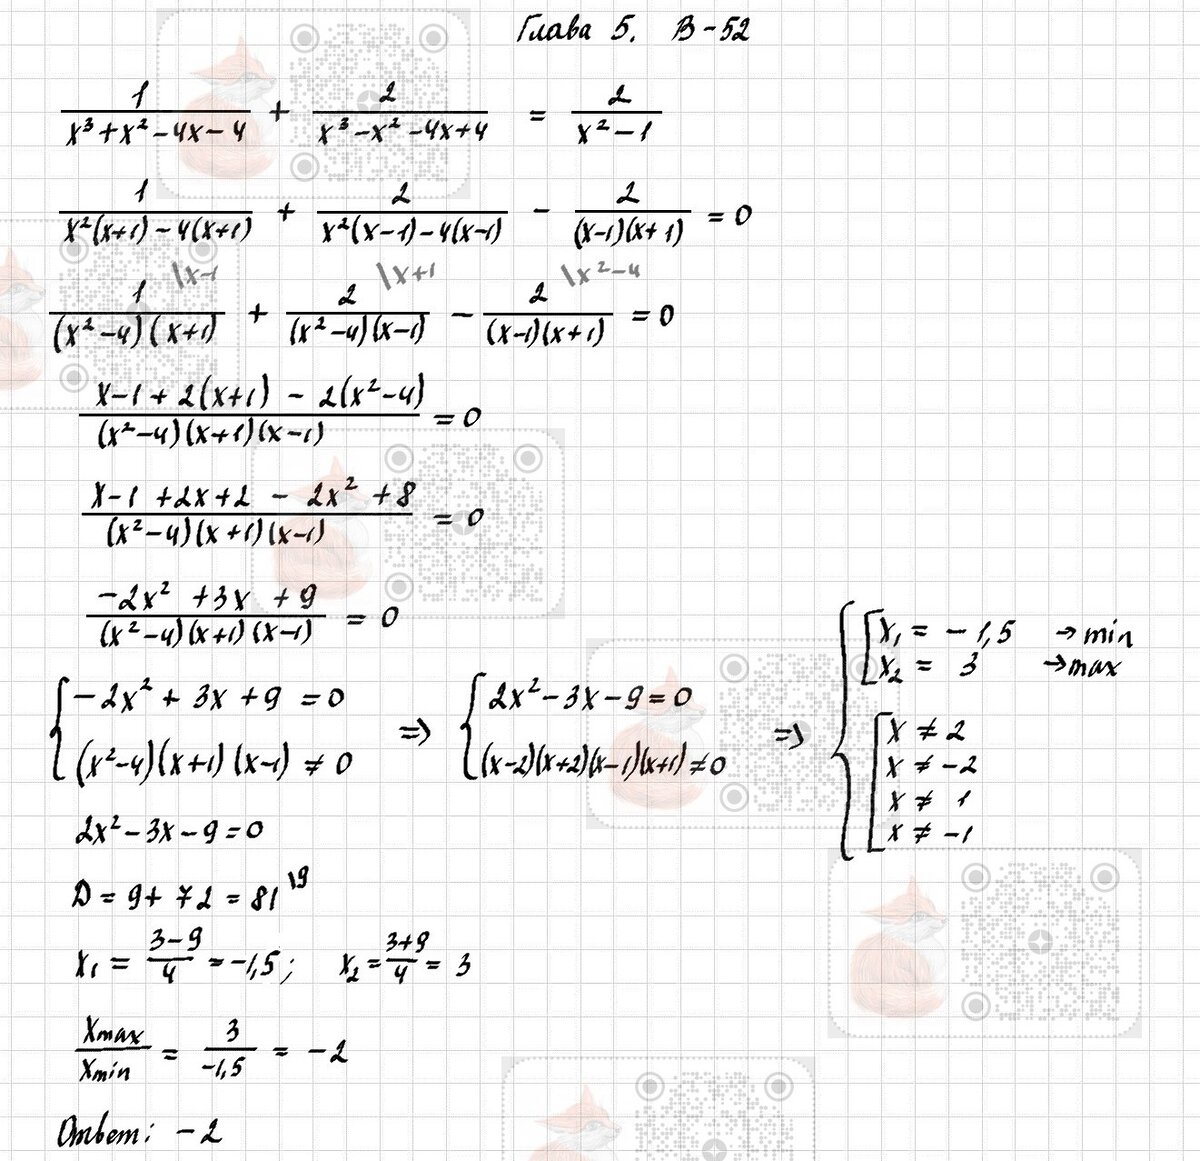 Глава 5. В-52
1/(x³+x²-4x-4) + 2/(x³-x²-4x+4) = 2/(x²-1)
1/(x²(x+1)-4(x+1)) + 2/(x²(x-1)-4(x-1)) - 2/((x-1)(x+1)) = 0
1\x-1/((x²-4)(x+1)) + 2\x+1/((x²-4)(x-1)) - 2\x²-4/((x-1)(x+1)) = 0
(x-1+2(x+1)-2(x²-4))/((x²-4)(x+1)(x-1)) = 0
(x-1+2x+2-2x²+8)/((x²-4)(x+1)(x-1)) = 0
(-2x²+3x+9)/((x²-4)(x+1)(x-1)) = 0
{-2x²+3x+9=0
(x²-4)(x+1)(x-1)≠0
=> {2x²-3x-9=0
(x-2)(x+2)(x-1)(x+1)≠0
=> {[x₁ = -1,5 → min
x₂ = 3 → max
[x ≠ 2
x ≠ -2
x ≠ 1
x ≠ -1
2x²-3x-9=0
D = 9+72 = 81 \9
x₁ = (3-9)/4 = -1,5; x₂ = (3+9)/4 = 3
xmax/xmin = 3/(-1,5) = -2
Ответ: -2